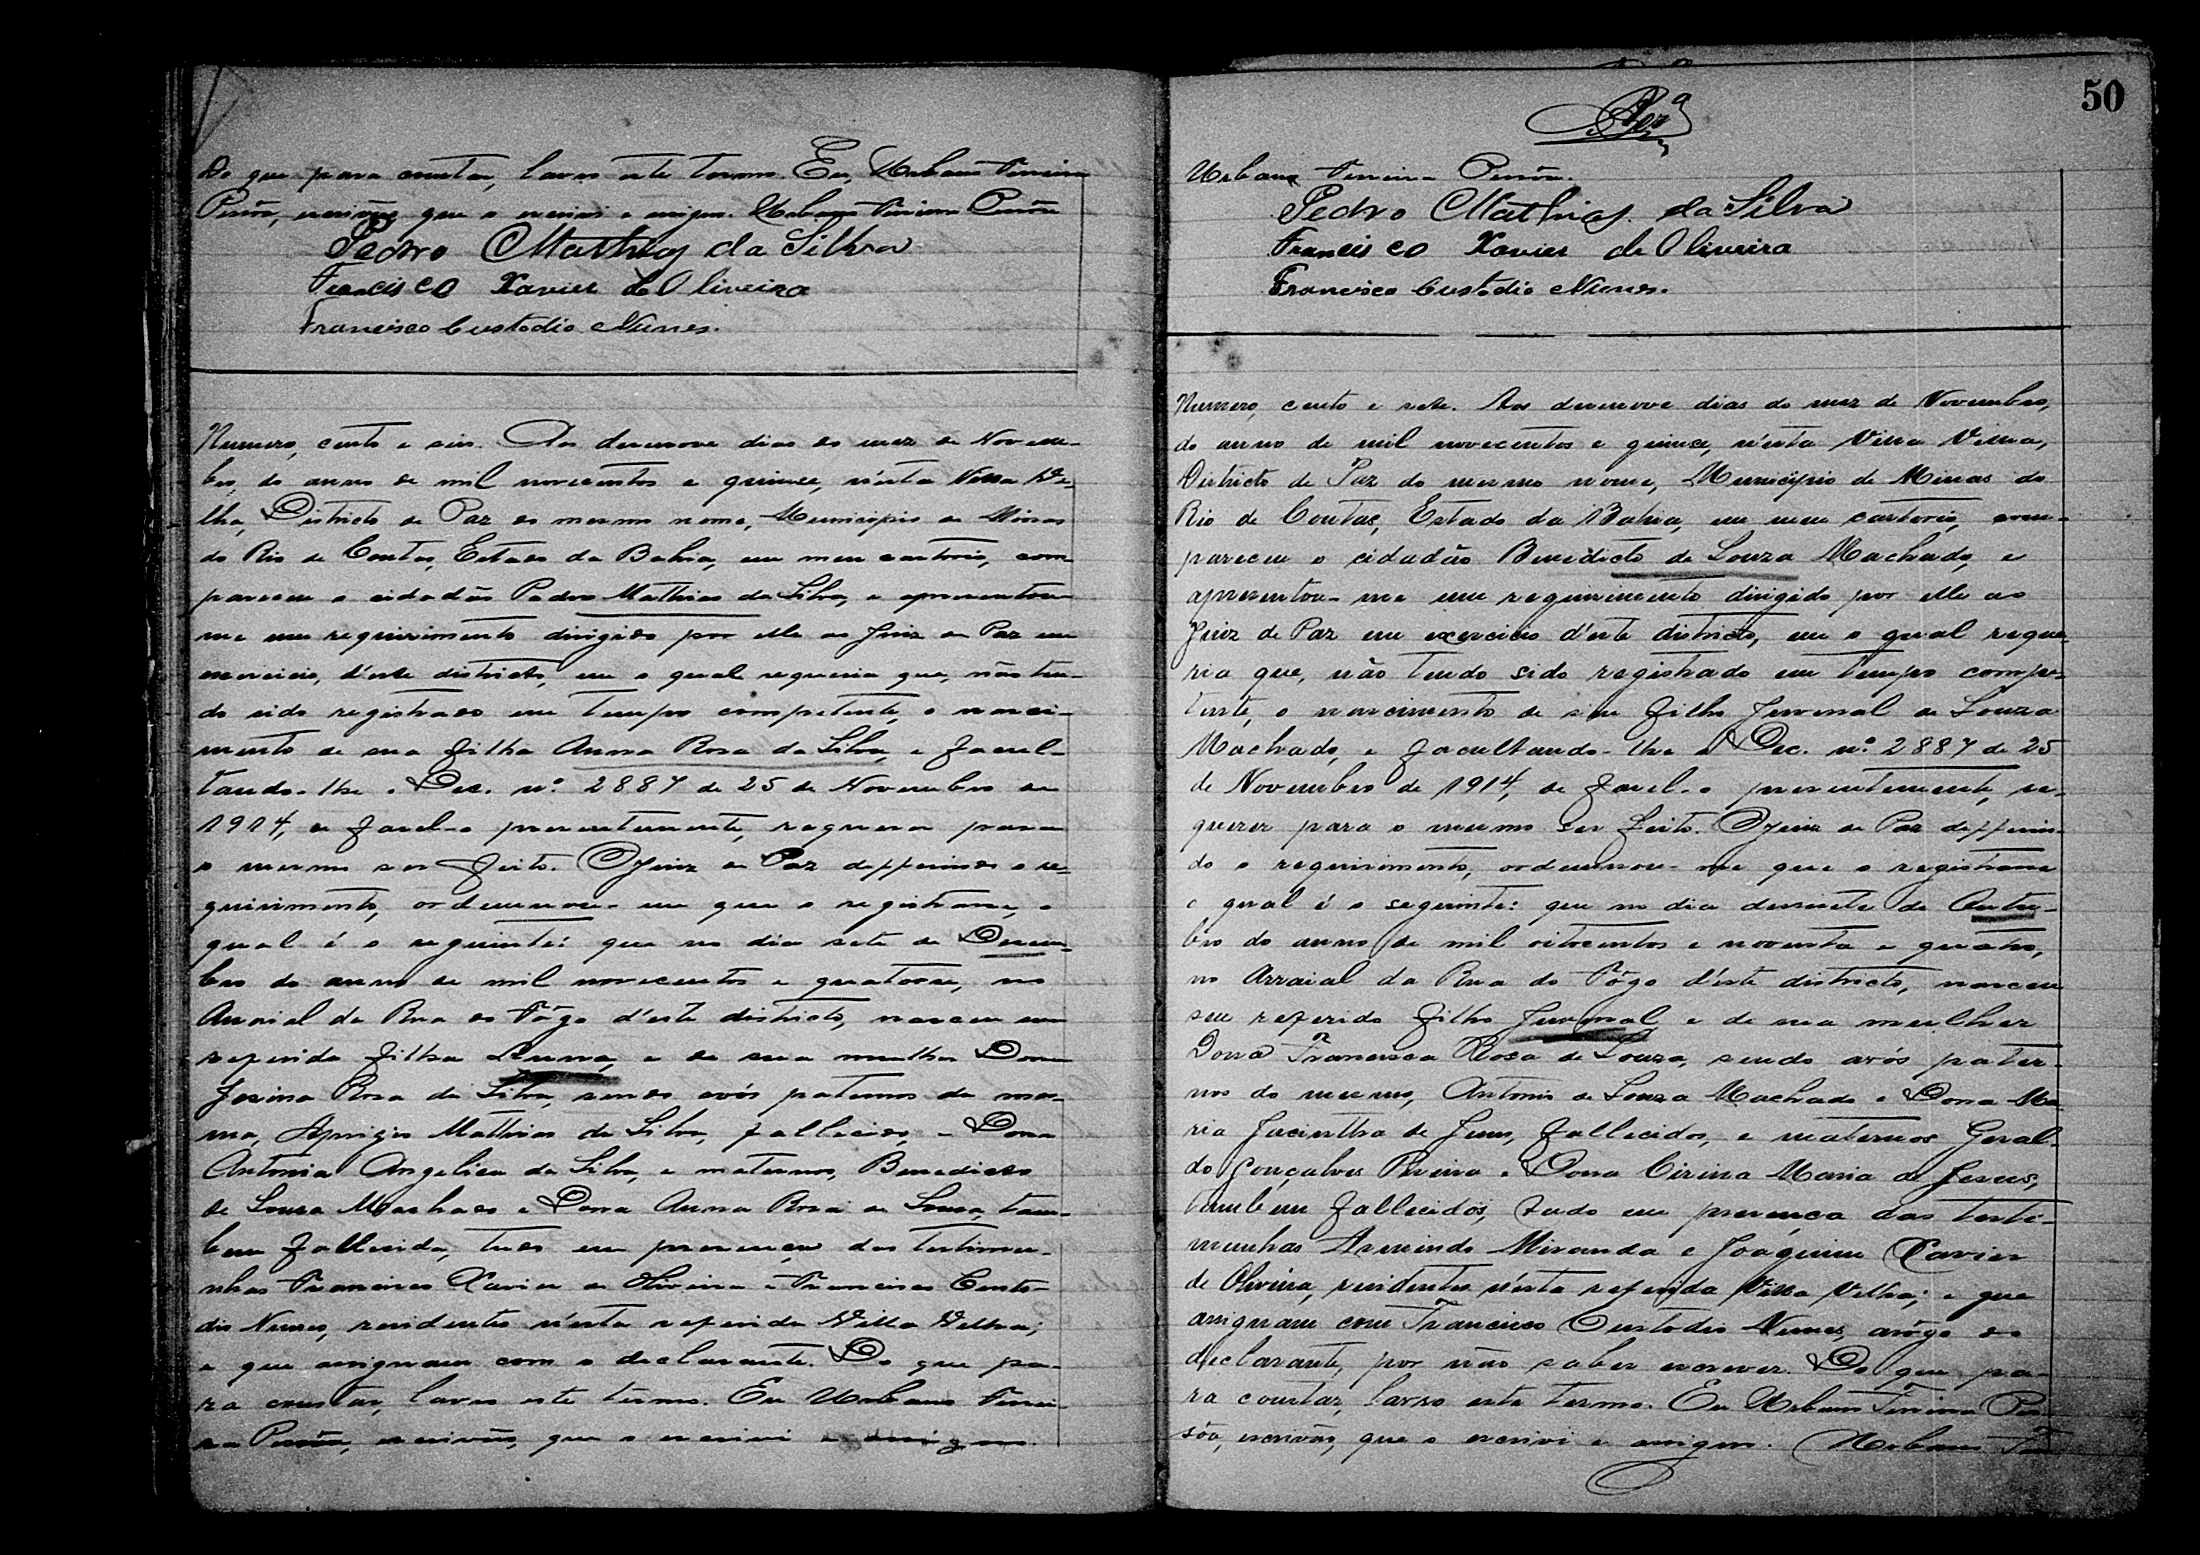 De que para constar, lavro este termo. Eu, Urbano Ferreira
Pessôa, escrivão, que o escrevi e assigno. Urbano Ferreira Pessôa
Pedro Mathias da Silva
Francisco Xavier de Oliveira
Francisco Custodio Nunes.
Numero, cento e seis. Aos desenove dias do mez de Novem-
bro, do anno de mil novecentos e quinze, n'esta Villa Ve-
lha, Districto de Paz do mesmo nome, Municipio de Minas
do Rio de Contas, Estado da Bahia, em meu cartorio, com-
pareceu o cidadão Pedro Mathias da Silva, e apresentou-
me um requirimento dirigido por elle ao Juiz de Paz em
exercicio, d'este districto, em o qual requeria que, não ten-
do sido registrado em tempo competente, o nasci-
mento de sua filha Anna Rosa da Silva, e facul-
tando-lhe o Dec. nº 2887 de 25 de Novembro de
1914, de fazel-o presentemente, requerer para
o mesmo ser feito. O Juiz de Paz defferindo o re-
quirimento, ordennou-me que o registrasse, o
qual é o seguinte: que no dia sete de Dezem-
bro do anno de mil novecentos e quatorze, no
Arraial da Rua do Fôgo d'este districto, nasceu sua
referida filha Anna, e de sua mulher Dona
Jesina Rosa da Silva, sendo avós paternos da mes-
ma, Aprigio Mathias da Silva, fallecido, e Dona
Antonia Angelica da Silva, e maternos, Benedicto
de Souza Machado e Dona Anna Rosa de Souza, tam-
bem fallecida, tudo em presença das testimu-
nhas Francisco Xavier de Oliveira e Francisco Custo-
dio Nunes, residentes n'esta referida Villa Velha;
e que assignam com o declarante. Do que pa-
ra constar, lavro este termo. Eu Urbano Ferrei-
ra Pessôa, escrivão, que o escrevi e assigno.
50
Urbano Ferreira Pessôa.
Pedro Mathias da Silva
Francisco Xavier de Oliveira
Francisco Custodio Nunes.
Numero, cento e sete. Aos desenove dias do mez de Novembro,
do anno de mil novecentos e quinze, n'esta Villa Velha,
Districto de Paz do mesmo nome, Municipio de Minas do
Rio de Contas, Estado da Bahia, em meu cartorio, com-
pareceu o cidadão Benedicto de Souza Machado, e
apresentou-me um requirimento dirigido por elle ao
Juiz de Paz em exercicio d'este districto, em o qual reque-
ria que, não tendo sido registrado em tempo compe-
tente, o nascimento de seu filho Juvenal de Souza
Machado, e facultando-lhe o Dec. nº 2887 de 25
de Novembro de 1914, de fazel-o presentemente, re-
querer para o mesmo ser feito. O Juiz de Paz defferin-
do o requirimento, ordennou-me que o registrasse
o qual é o seguinte: que no dia desesete de Outu-
bro do anno de mil oitocentos e noventa e quatro,
no Arraial da Rua do Fôgo d'este districto, nasceu
seu referido filho Juvenal e de sua mulher
Dona Francisca Rosa de Souza, sendo avós pater-
nos do mesmo, Antonio de Souza Machado e Dona Ma-
ria Jacintha de Jesus, fallecidos, e maternos Geral-
do Gonçalves Pereira e Dona Cirina Maria de Jesus,
tambem fallecidos, tudo em presença das testi-
munhas Armindo Miranda e Joaquim Xavier
de Oliveira, residentes n'esta referida Villa Velha; e que
assignam com Francisco Custodio Nunes, arôgo do
declarante, por não saber escrever. Do que pa-
ra constar, lavro este termo. Eu Urbano Ferreira Pes-
sôa, escrivão, que o escrevi e assigno. Urbano Fer